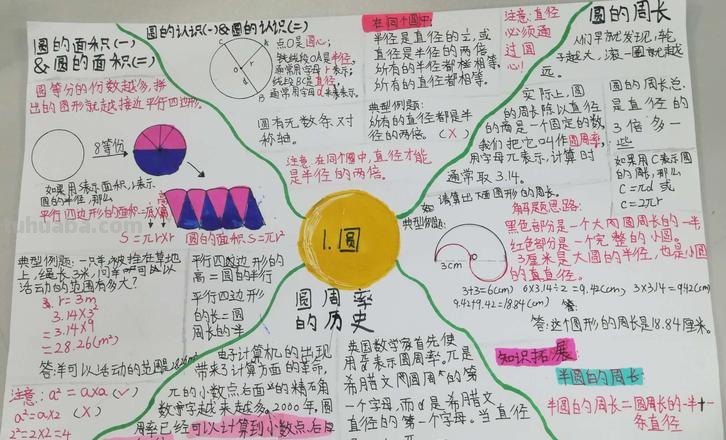 圆的面积(一)
&圆的面积(二)
圆等分的份数越多,拼
出的图形就越接近平行四边形。
8等份
如果用S表示面积,r表示
圆的半径,那么
平行四边形的面积=底×高
S=πr×r 圆的面积S=πr²
典型例题:一只羊被拴在草地
上,绳长3米,问羊可以
活动的范围有多大?
r=3m
3.14×3²
=3.14×9
=28.26(m²)
答:羊可以活动的范围是
注意:a²=a×a(✓)
a²=a×2(X)
2²=2×2=4
平行四边形的
高=圆的半径
平行四边形
的长=圆
周长的半
圆的认识(一)&圆的认识(二)
点O是圆心;
线段OA是半径,
通常用字母r表示;
线段BC是直径,
通常用字母d来表示。
圆有无数条对
称轴。
在同个圆中:
半径是直径的½,或
直径是半径的两倍。
所有的半径都相等,
所有的直径都相等。
典型例题:
所有的直径都是半
径的两倍。(X)
注意:在同个圆中,直径才能
是半径的两倍。
注意:直径
必须通
过圆
心!
圆的周长
人们早就发现,轮
子越大,滚一圈就越
远。
实际上,圆
的周长除以直径
的商是一个固定的数,
我们把它叫作圆周率,
用字母π表示,计算时
通常取3.14。
圆的周长总
是直径的
3倍多一
些
如果用C表示圆
的周长,那么
C=πd或
C=2πr
如 请算出下面图形的周长。
3cm
解题思路:
黑色部分是一个大圆周长的一半
红色部分是一个完整的小圆。
3厘米是大圆的半径,也是小圆
的直径。
3+3=6(cm) 6×3.14÷2=9.42(cm) 3×3.14=9.42(cm)
9.42+9.42=18.84(cm)
答:这个图形的周长是18.84厘米。
1.圆
圆周率
的历史
电子计算机的出现
带来了计算方面的革命,
π的小数点后面的精确
数字越来越多。2000年,圆
周率已经可以计算到小数点后
英国数学家首先使
用π表示圆周率。π是
希腊文圆周的第
一个字母,而d是希腊文
直径的第一个字母。当直径
知识拓展
半圆的周长
半圆的周长=圆周长的一半+一
条直径
tuhuaba.com